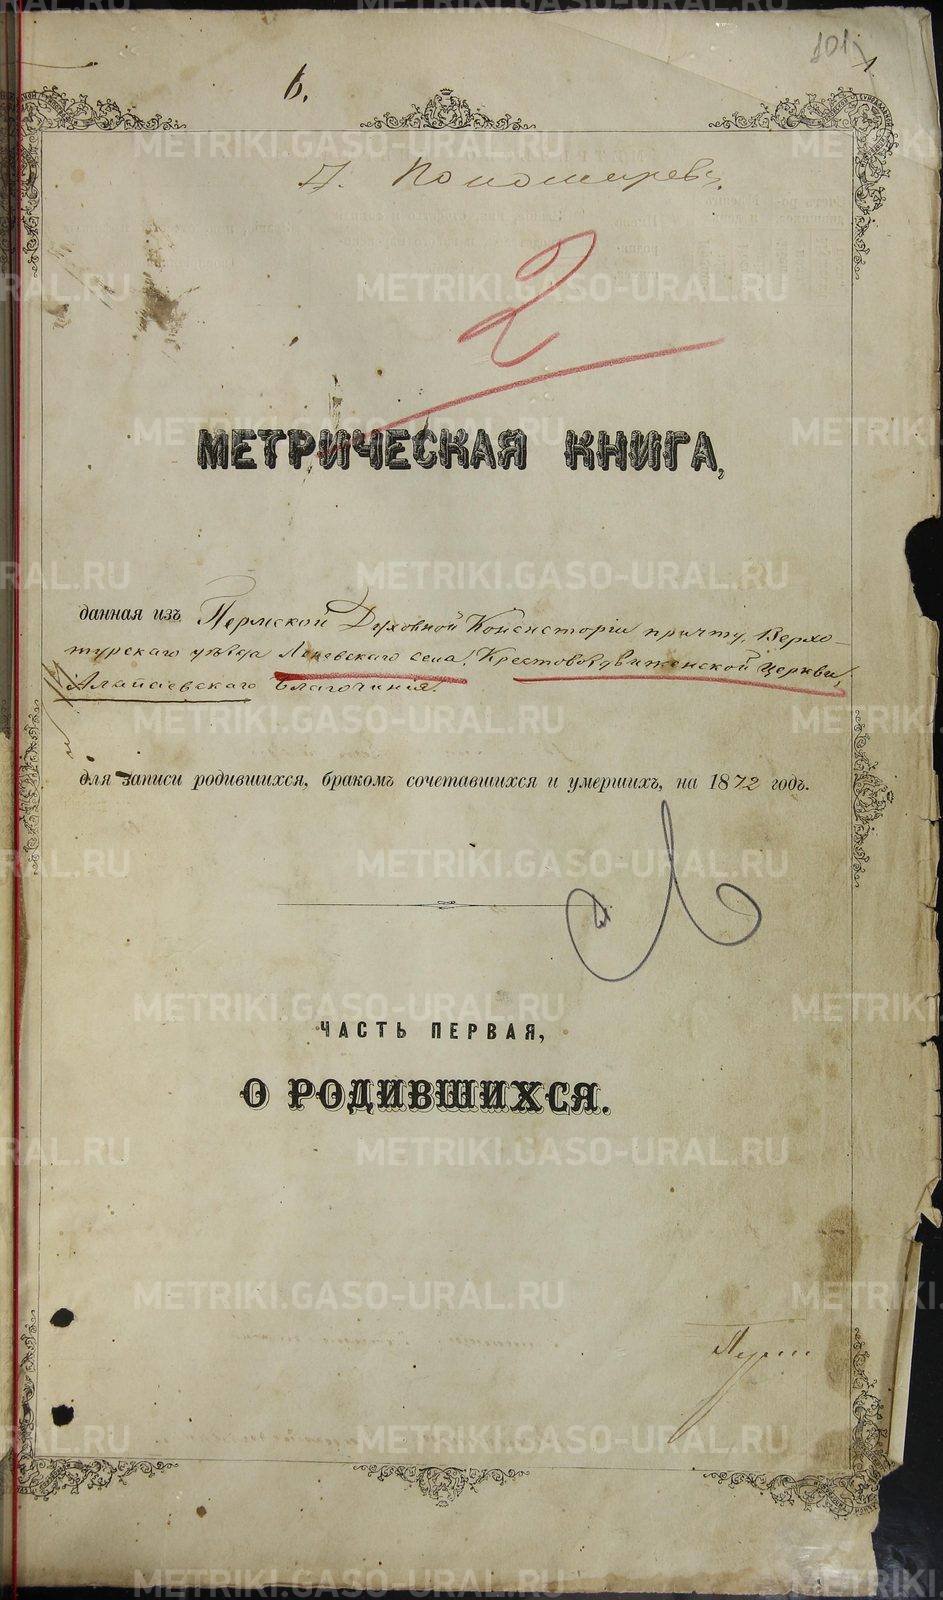 101
1
6.
Д. Пономаревъ.
2
МЕТРИЧЕСКАЯ КНИГА,
данная изъ Пермской Духовной Консисторіи причту, Верхо-
турскаго уѣзда Леневскаго села, Крестовоздвиженской Церкви,
Алапаевскаго Благочинія.
для записи родившихся, бракомъ сочетавшихся и умершихъ, на 1872 годъ.
ЧАСТЬ ПЕРВАЯ,
О РОДИВШИХСЯ.
METRIKI.GASO-URAL.RU